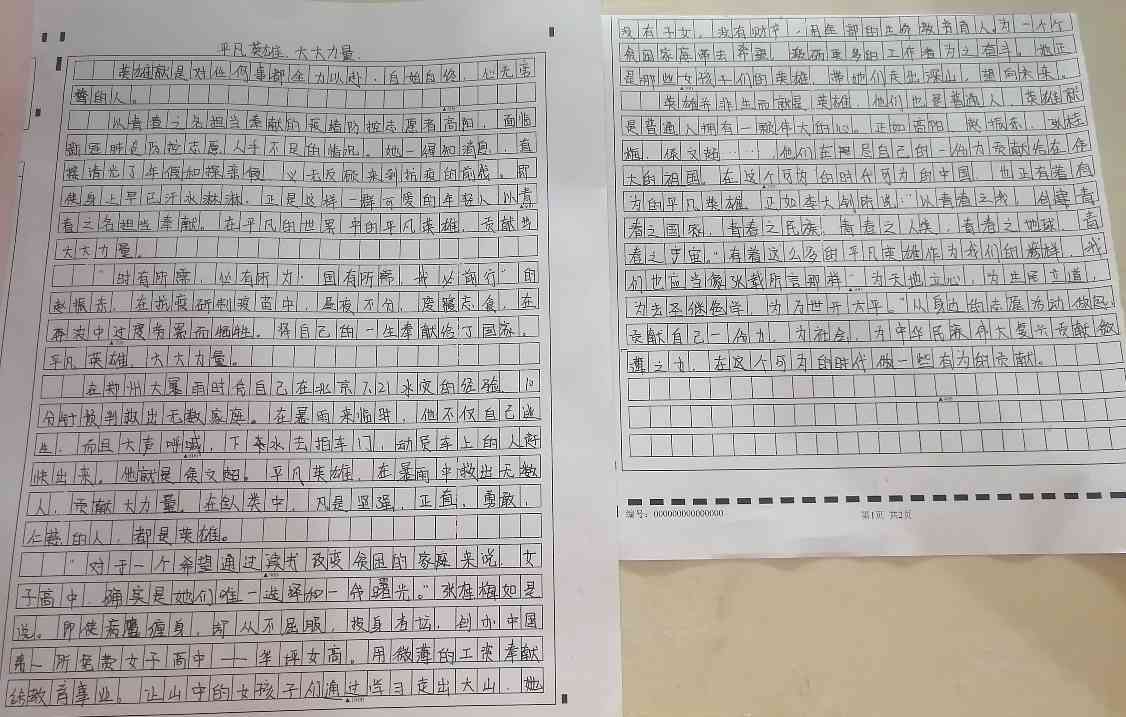 平凡英雄,大大力量
英雄就是对任何事都全力以赴,自始自终,心无旁
骛的人。
以青春之名担当奉献的疫情防控志愿者高阳,面临
新冠肺炎防控志愿人手不足的情况。她一得知消息,直
接请光了年假和探亲假,义无反顾来到抗疫的前线。即
使身上早已汗水淋淋。正是这样一群可爱的年轻人以青
春之名担当奉献。在平凡的世界中的平凡英雄,贡献出
大大力量。
"时有所需,必有所为;国有所需,我必前行"的
赵振东,在抗疫研制疫苗中,昼夜不分,废寝忘食,在
奔波中过度劳累而牺牲。将自己的一生奉献给了国家。
平凡英雄,大大力量。
在郑州大暴雨时凭自己在北京7.21水灾的经验,10
分钟预判救出无数家庭。在暴雨来临时,他不仅自己逃
生,而且大声呼喊,下来水去拍车门,动员车上的人赶
快出来。他就是侯文超。平凡英雄,在暴雨中救出无数
人,贡献大力量。在人类中,凡是坚强,正直,勇敢,
仁慈的人,都是英雄。
"对于一个希望通过读书改变贫困的家庭来说,女
子高中,确实是她们唯一选择和一线曙光。"张桂梅如是
说。即使病魔缠身,却从不屈服,投身育坛,创办中国
第一所免费女子高中——华坪女高。用微薄的工资奉献
给教育事业。让山中的女孩子们通过学习走出大山,她
没有子女,没有财产,用全部的生命教书育人为一个个
贫困家庭带去希望,教病更多的工作者为之奋斗。她正
是那些女孩子们的英雄,带她们走出深山,望向未来。
英雄并非生而就是英雄,他们也是普通人,英雄就
是普通人拥有一颗伟大的心。正如高阳,赵振东,张桂
梅,侯文超……,他们在竭尽自己的一份力贡献给在伟
大的祖国。在这个可为的时代可为的中国,也正有着有
为的平凡英雄。正如李大钊所说:"以青春之我,创建青
春之国家,青春之民族,青春之人类,青春之地球,青
春之宇宙。"有着这么多的平凡英雄作为我们的榜样,我
们也应当像张载所言那样"为天地立心,为生民立道,
为去圣继绝学,为万世开太平。"从身边的志愿活动做起,
贡献自己一份力,为社会,为中华民族伟大复兴贡献微
薄之力,在这个可为的时代做一些有为的贡献。
编号:000000000000000
第1页 共2页